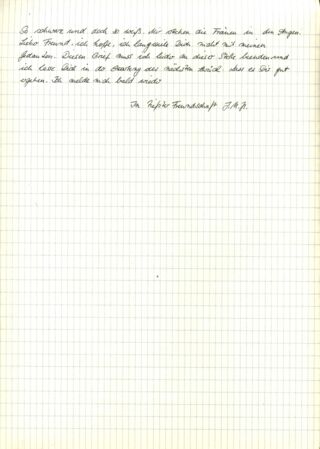 So schwarz und doch so weiß, dir stehen die Tränen in den Augen.
Lieber Freund, ich hoffe, ich langweile Dich nicht mit meinen
Gedanken. Diesen Brief muss ich leider an dieser Stelle beenden und
ich lasse Dich in der Erwartung des nächsten durch dass es Dir gut
ergehen. Ich melde mich bald wieder
In tiefster Freundschaft J.M.A.